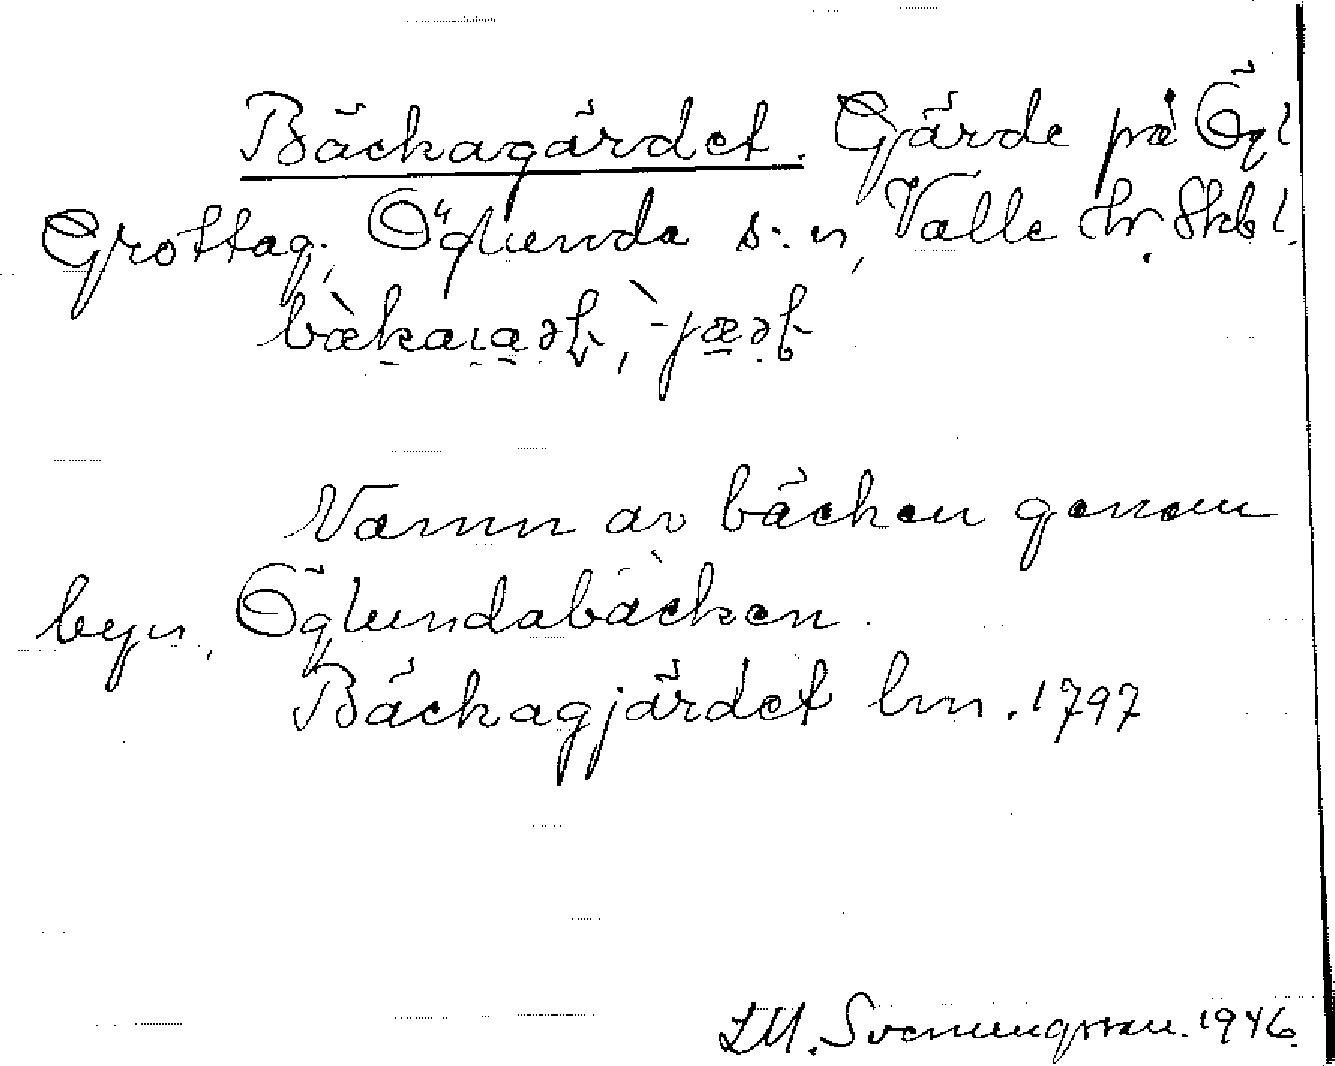 Bäckagärdet. Gärde på Ögl
Grottag., Öglunda s:n, Valle hr. Skbl.
bæ̀kaɹæət, -jæət
Namn av bäcken genom
byn, Öglundabäcken.
Bäckagjärdet lm. 1797
LM. Svenungsson. 1946.